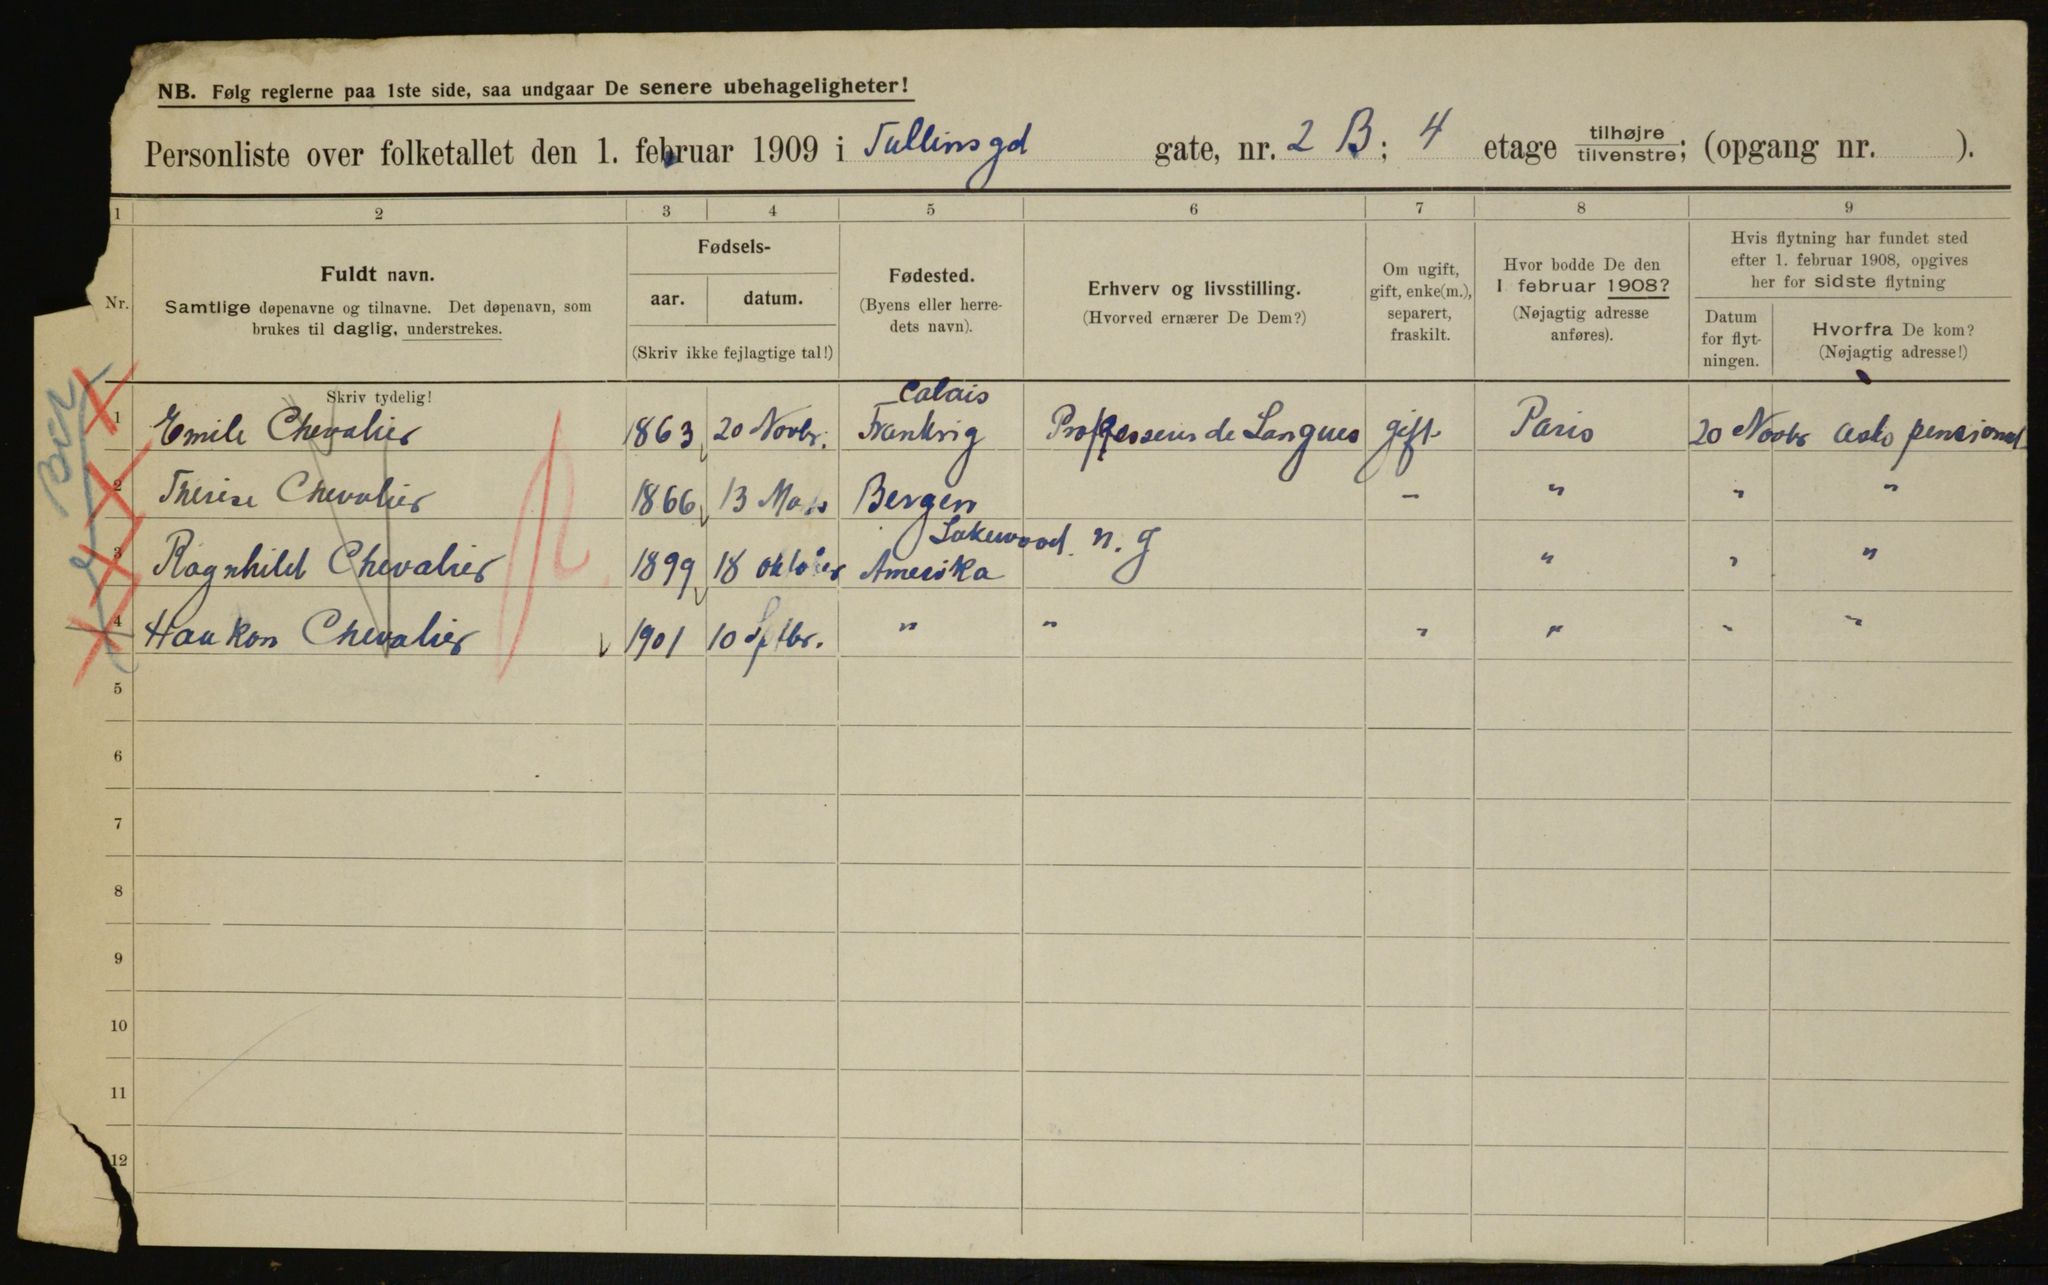 NB. Følg reglerne paa 1ste side, saa undgaar De senere ubehageligheter!
Personliste over folketallet den 1. februar 1909 i Tullinsgd gate, nr. 2 B; 4 etage tilhøjre tilvenstre; (opgang nr. ).
1 2 3 4 5 6 7 8 9
Nr.
Fuldt navn.
Samtlige døpenavne og tilnavne. Det døpenavn, som
brukes til daglig, understrekes.
Fødsels-
aar. datum.
(Skriv ikke fejlagtige tal!)
Fødested.
(Byens eller herre-
dets navn).
Erhverv og livsstilling.
(Hvorved ernærer De Dem?)
Om ugift,
gift, enke(m.),
separert,
fraskilt.
Hvor bodde De den
1 februar 1908?
(Nøjagtig adresse
anføres).
Hvis flytning har fundet sted
efter 1. februar 1908, opgives
her for sidste flytning
Datum
for flyt-
ningen.
Hvorfra De kom?
(Nøjagtig adresse!)
Skriv tydelig!
Calais
1 Emile Chevalier 1863 20 Novbr. Frankrig Professeur de Langues gift Paris 20 Novbr Asks pensionat
2 Therese Chevalier 1866 13 Mars Bergen — " " "
Lakewood n. g
3 Ragnhild Chevalier 1899 18 oktober Amerika " " "
4 Haukon Chevalier 1901 10 Sptbr. " " " " " "
5
6
7
8
9
10
11
12